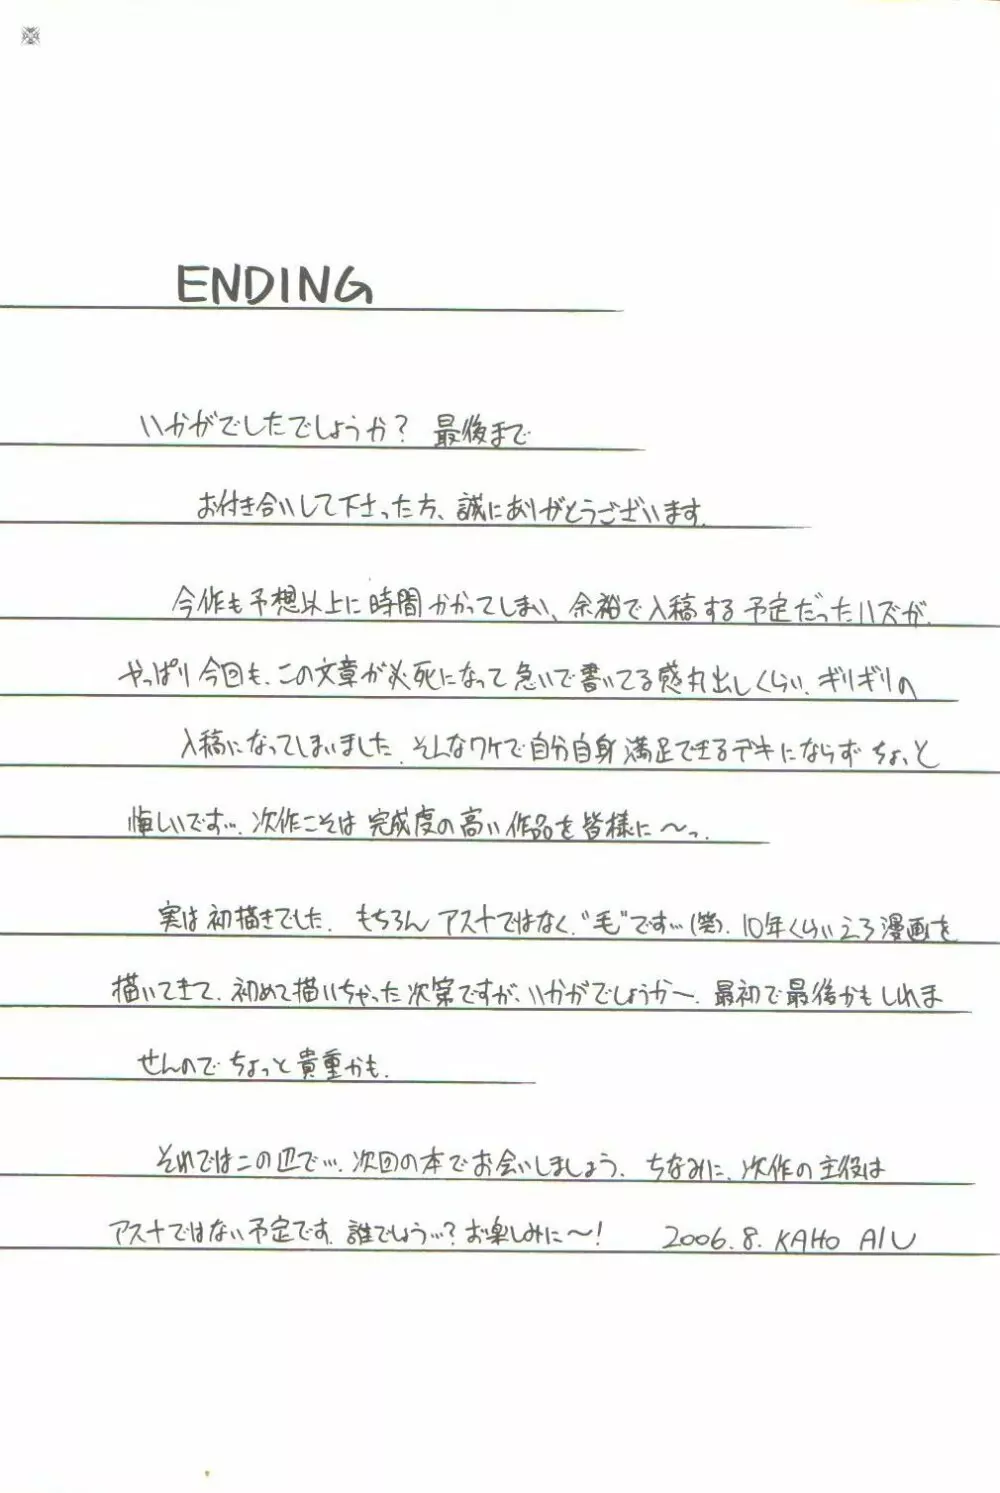 ENDING
いかがでしたでしょうか? 最後まで
お付き合いして下さった方、誠にありがとうございます.
今作も予想以上に時間かかってしまい、余裕で入稿する予定だったハズが、
やっぱり今回も、この文章が必死になって急いで書いてる感丸出しくらい、ギリギリの
入稿になってしまいました. そんなワケで自分自身満足できるデキにならずちょっと
悔しいです…. 次作こそは完成度の高い作品を皆様に〜っ.
実は初描きでした. もちろんアスナではなく、“毛”です…(笑). 10年くらいえろ漫画を
描いてきて、初めて描いちゃった次第ですが、いかがでしょうかー. 最初で最後かもしれま
せんのでちょっと貴重かも.
それではこの辺で…. 次回の本でお会いしましょう. ちなみに、次作の主役は
アスナではない予定です. 誰でしょう…? お楽しみに〜! 2006.8. KAHO AIU